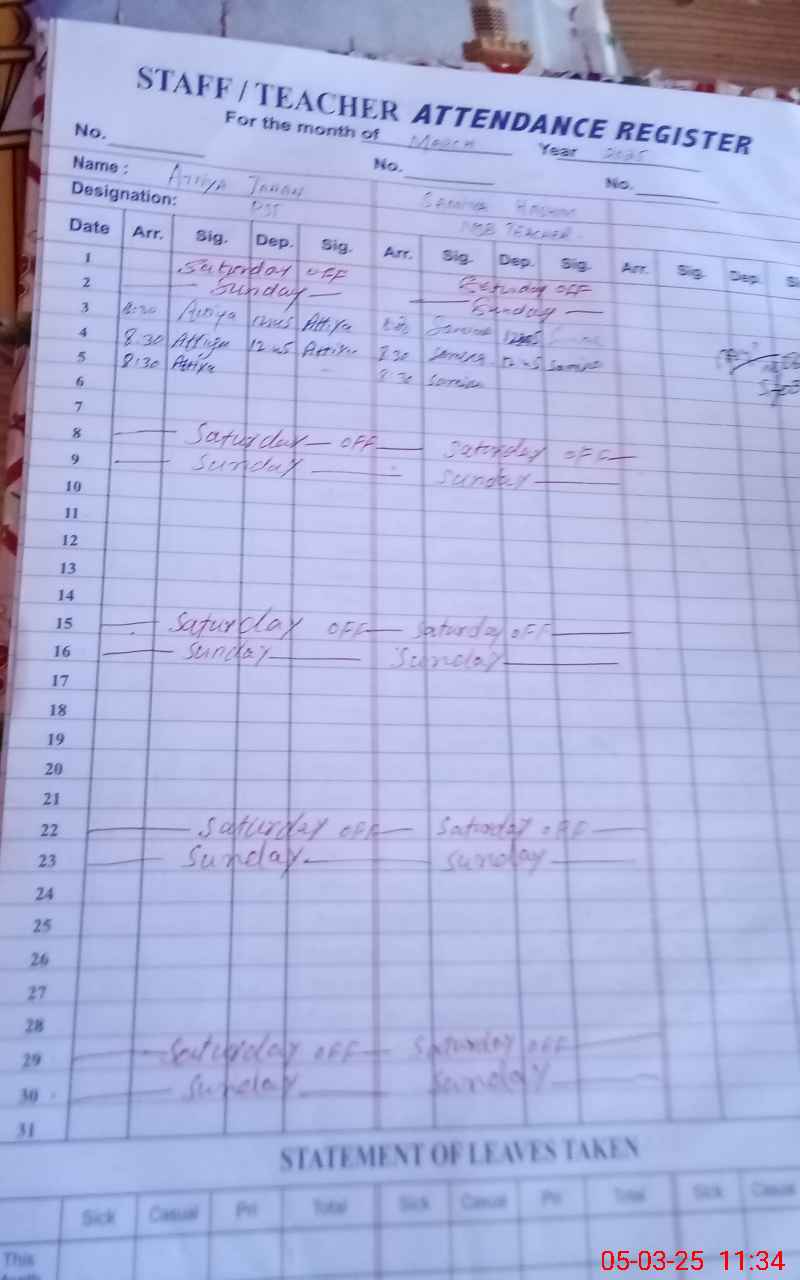 STAFF / TEACHER ATTENDANCE REGISTER
For the month of March Year 2025
No. No. No.
Name : Attiya Samina
Designation: PST TEACHER
Date Arr. Sig. Dep. Sig. Arr. Sig. Dep. Sig. Arr. Sig. Dep.
1 Saturday OFF Saturday OFF
2 Sunday Sunday
3 8:30 Attiya 12:45 Attiya Samina
4 8:30 Attiya 12:45 Attiya 8:30 Samina 12:45 Samina
5 8:30 Attiya 8:30 Samina
6
7
8 Saturday OFF Saturday OFF
9 Sunday Sunday
10
11
12
13
14
15 Saturday OFF Saturday OFF
16 Sunday Sunday
17
18
19
20
21
22 Saturday OFF Saturday OFF
23 Sunday Sunday
24
25
26
27
28
29 Saturday OFF Saturday OFF
30 Sunday Sunday
31
STATEMENT OF LEAVES TAKEN
Sick Casual Pri Total Sick Casual Pri Total Sick Casual
This
05-03-25 11:34